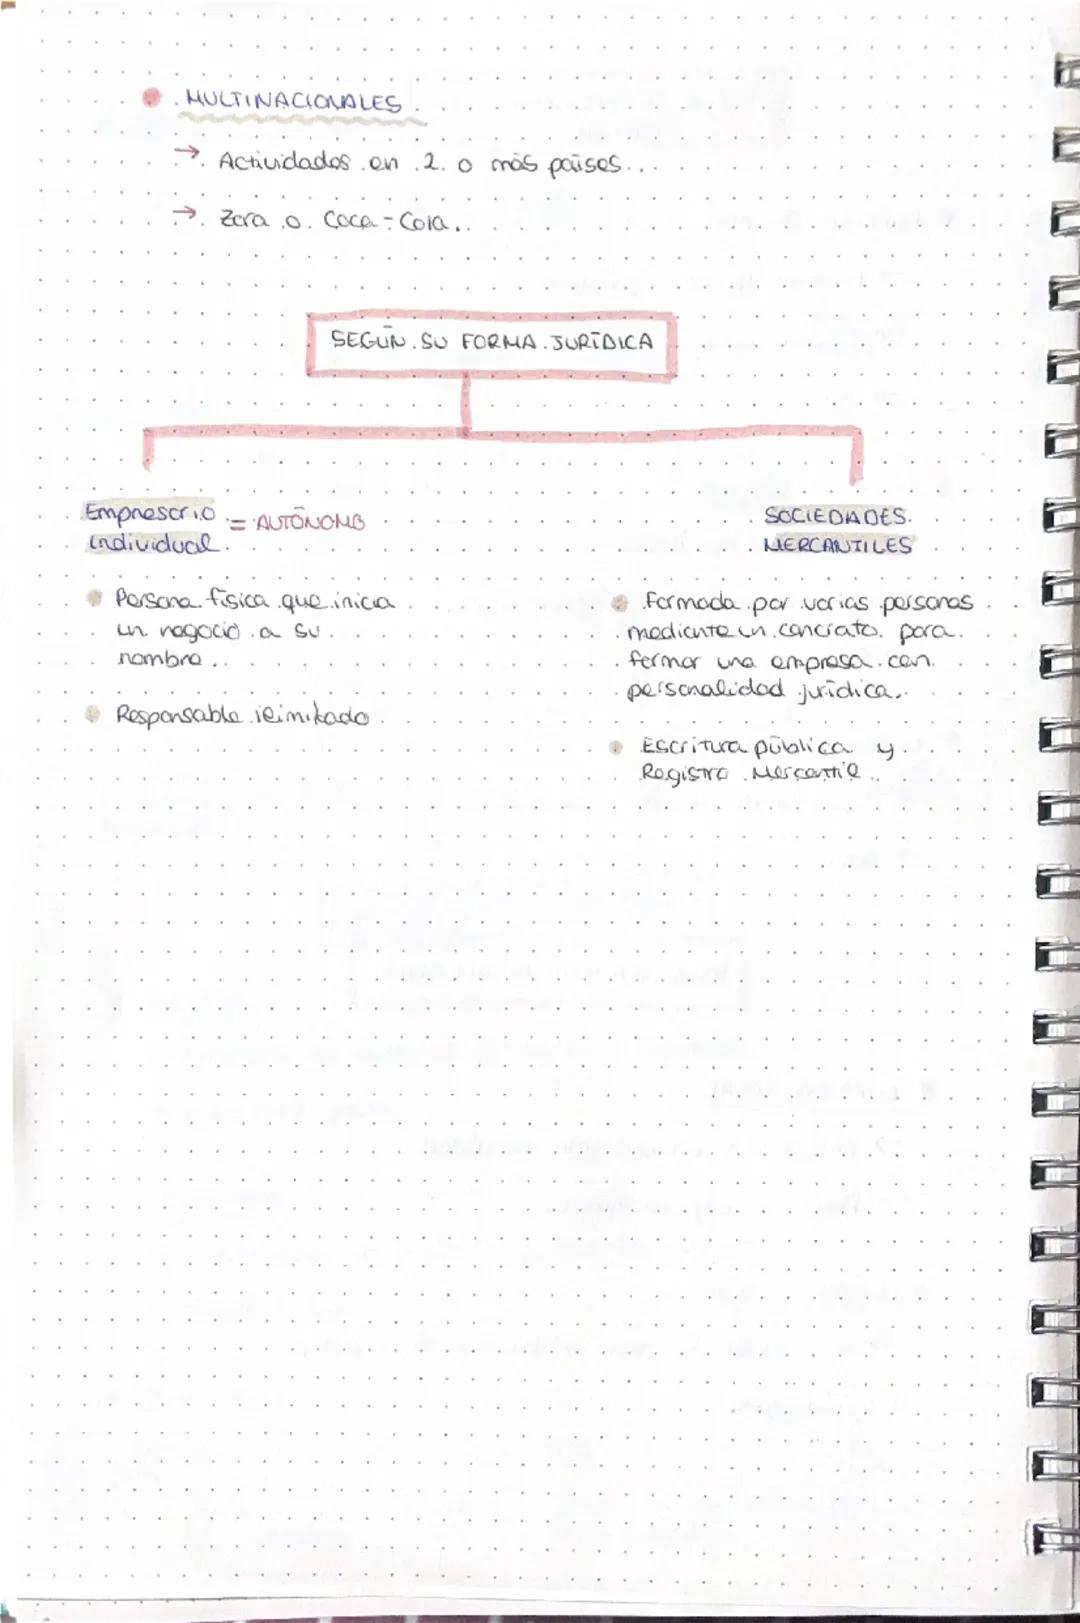 MULTINACIONALES
→ Actividades en 2 o más países.
→ Zara o Coca-Cola.
SEGÚN SU FORMA JURÍDICA
Empresario
individual
= AUTÓNOMO
Persona física que inicia
un negocio a su
nombre.
Responsable ilimitado
SOCIEDADES
MERCANTILES
Formada por varias personas
mediante un contrato para
formar una empresa con
personalidad jurídica.
Escritura pública y
Registro Mercantil.